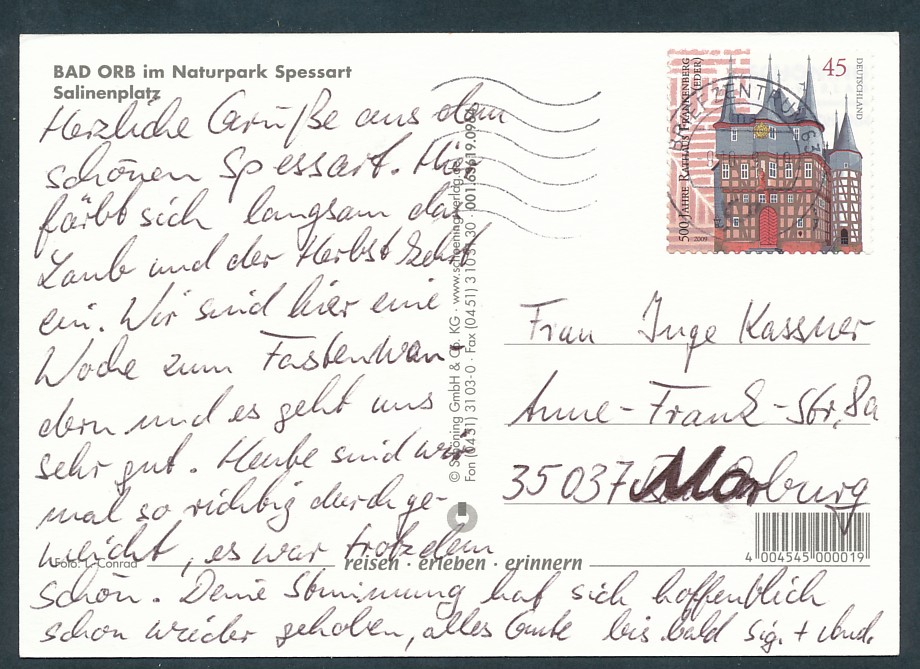 BAD ORB im Naturpark Spessart
Salinenplatz
Herzliche Grüße aus dem
schönen Spessart. Hier
färbt sich langsam das
Laub und der Herbst zieht
ein. Wir sind hier eine
Woche zum Fastenwan
dern und es geht uns
sehr gut. Heute sind wir
mal so richtig durchge-
weicht, es war trotzdem
schön. Deine Stimmung hat sich hoffentlich
schon wieder gehoben, alles Gute bis bald Sig. +
Foto: L. Conrad
reisen · erleben · erinnern
© Schöning GmbH & Co. KG · www.schoening-verlag.de
Fon (0451) 31 03-0 · Fax (0451) 31 03
500 JAHRE RATHAUS FRANKENBERG (EDER)
45
DEUTSCHLAND
2009
BRIEFZENTRUM 63
Frau Inge Kassner
Anne-Frank-Str. 8a
35037 Marburg
4 004545 000019